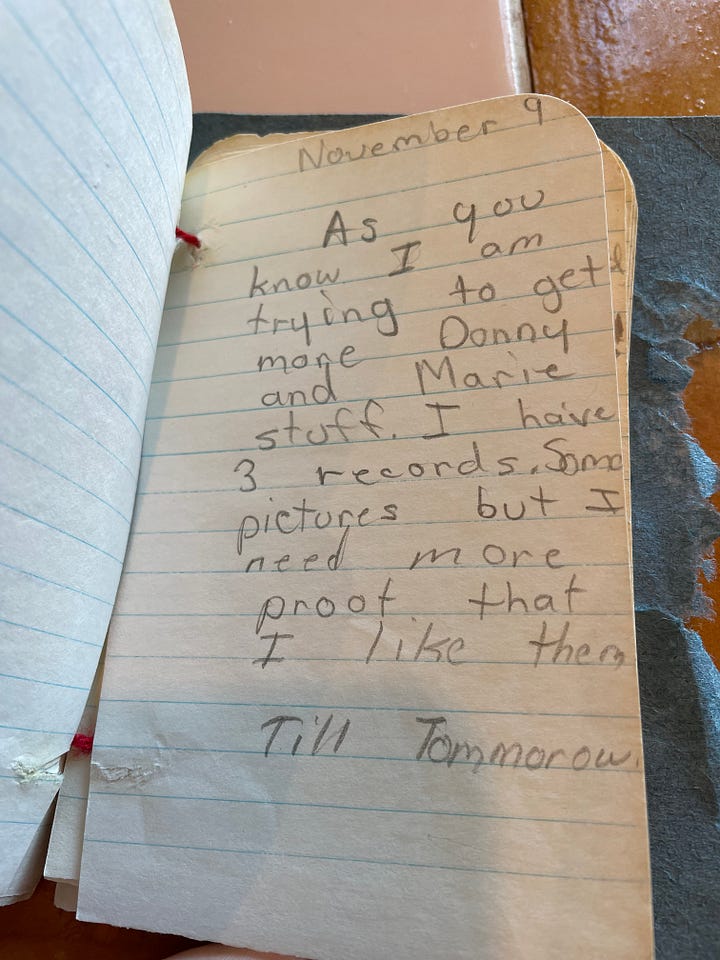 November 9
As you
know I am
trying to get
more Donny
and Marie
stuff. I have
3 records. Some
pictures but I
need more
proof that
I like them
Till Tommorow.